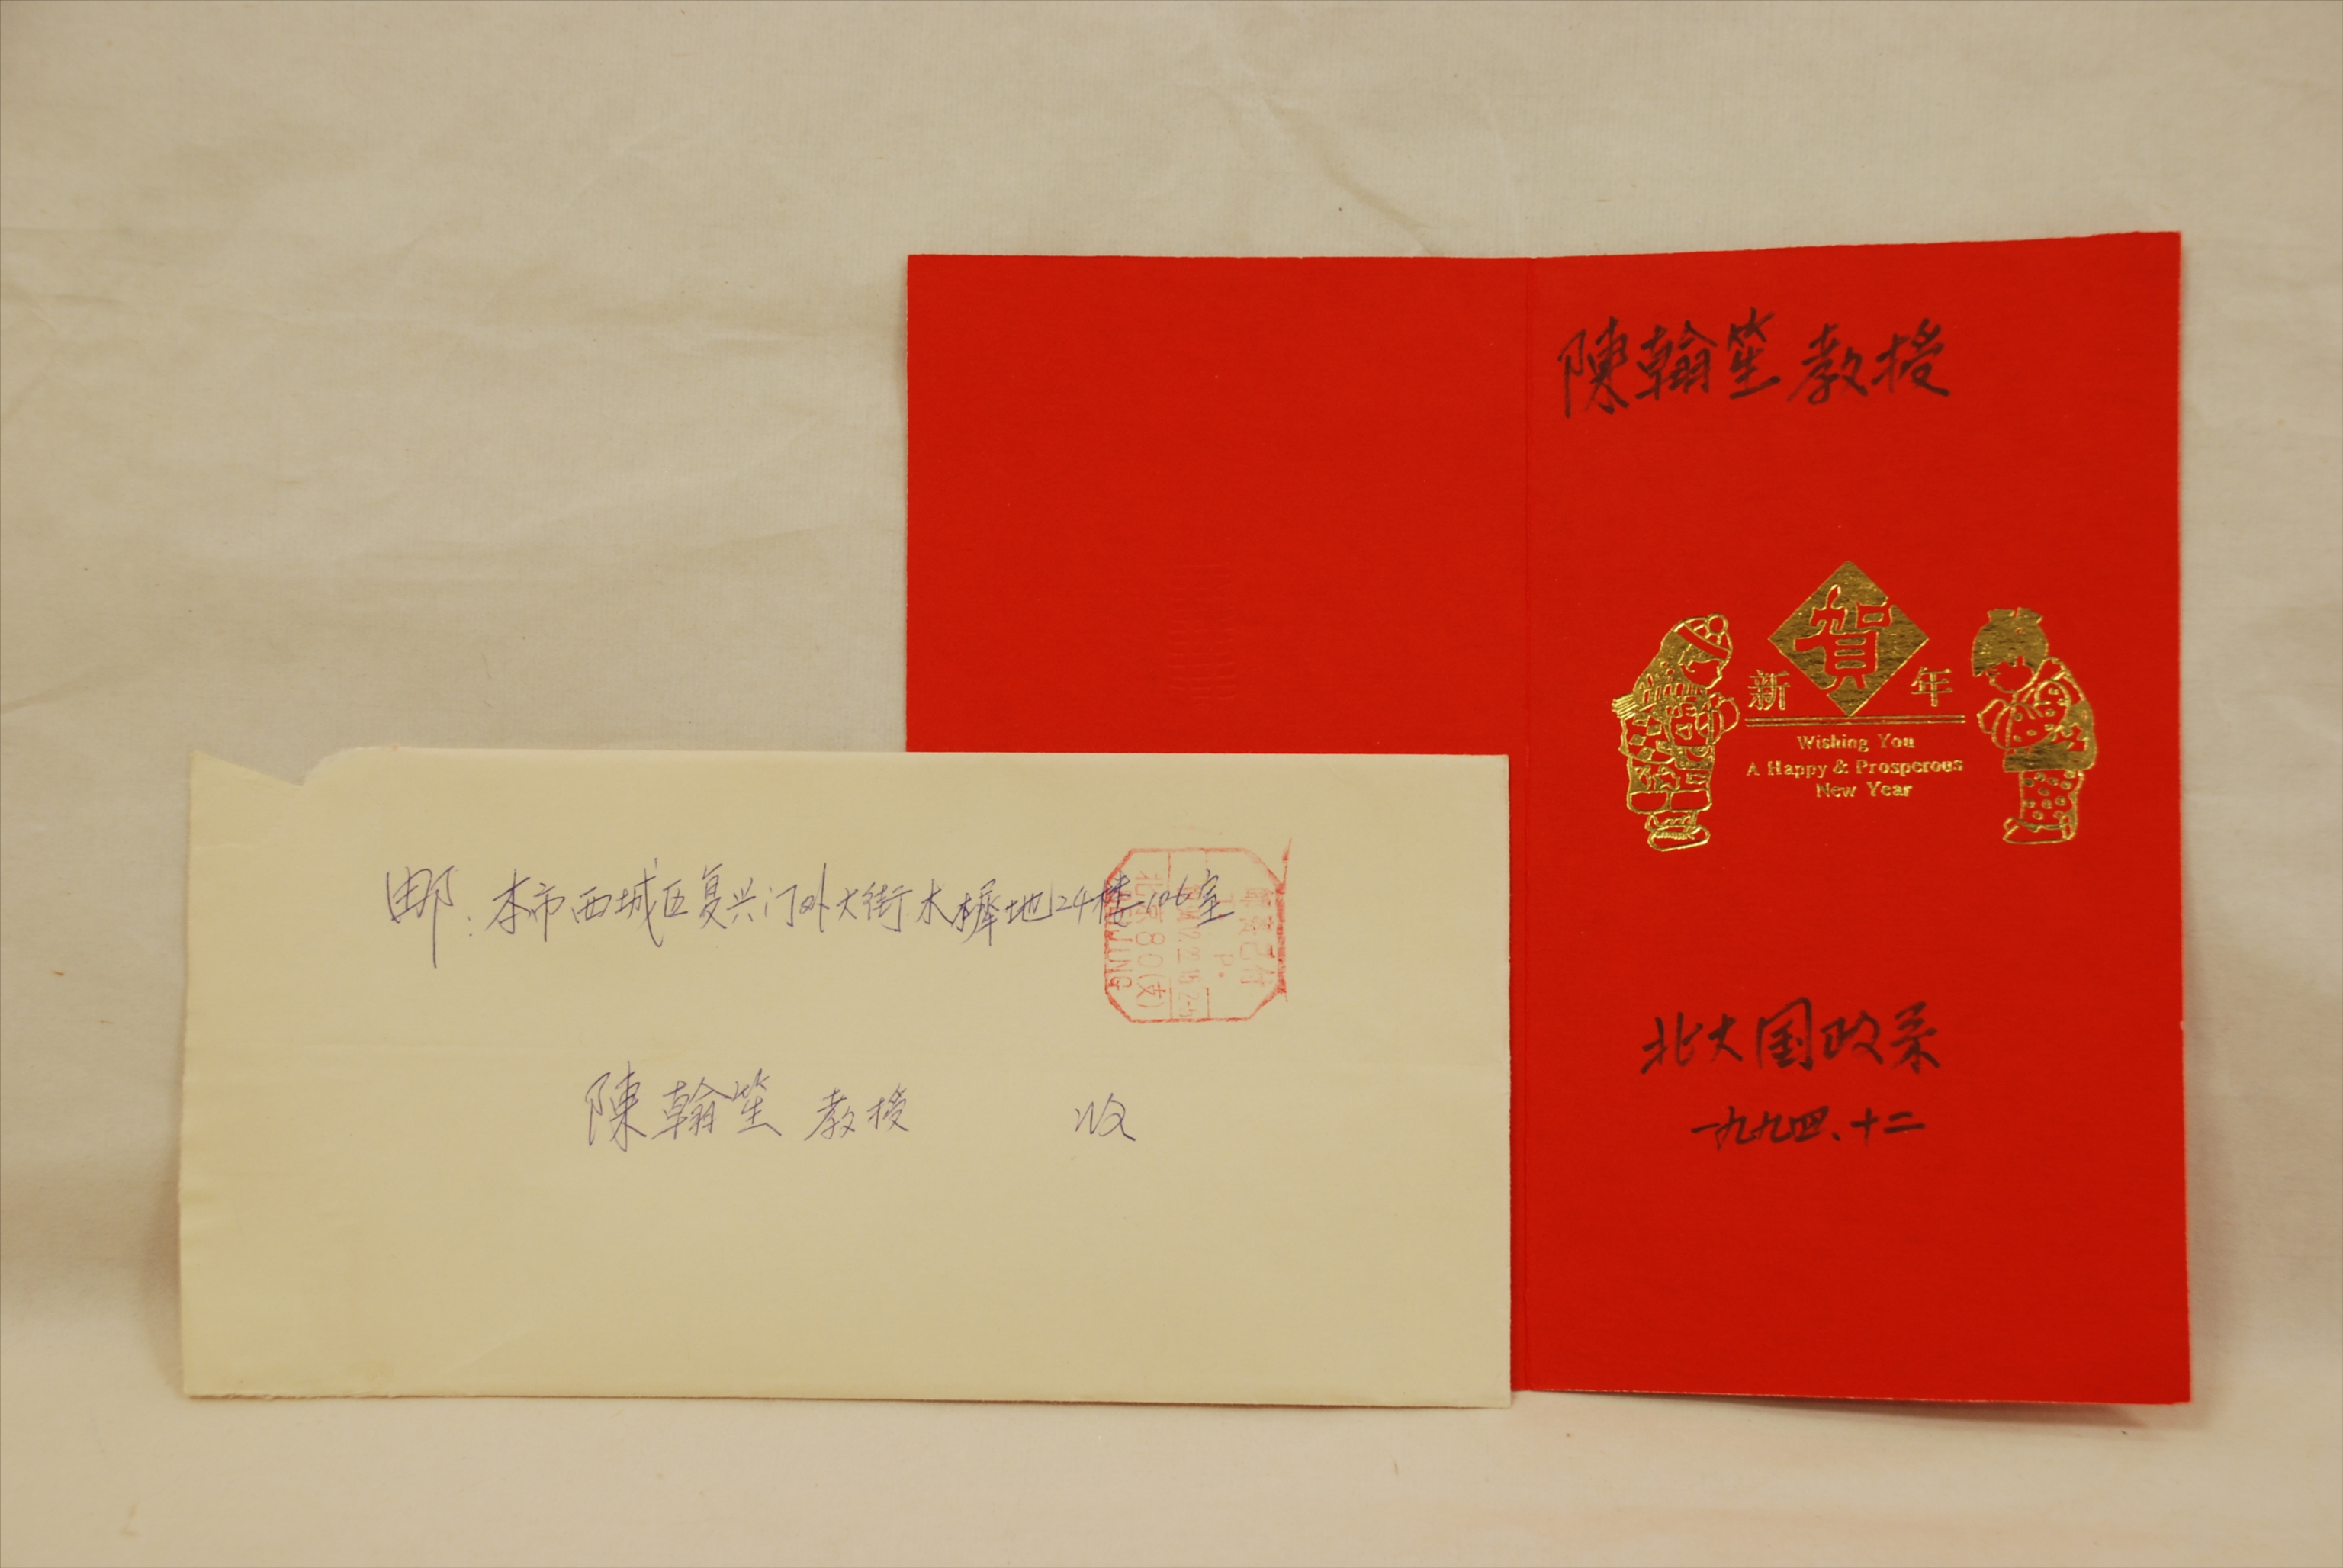 陳翰笙教授
賀
新 年
Wishing You
A Happy & Prosperous
New Year
北大国政系
一九九四、十二
邮:本市西城区复兴门外大街木樨地24楼106室
陳翰笙 教授 收
邮资已付
P.
12.22.15
北京80(支)
BEIJING